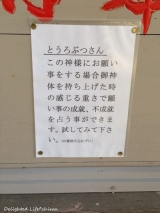 とうろぶつさん
この神様にお願い
事をする場合御神
体を持ち上げた時
の感じる重さで願
い事の成就、不成就
を占う事ができま
す。試してみて下さ
い。
Delighted Life@shima